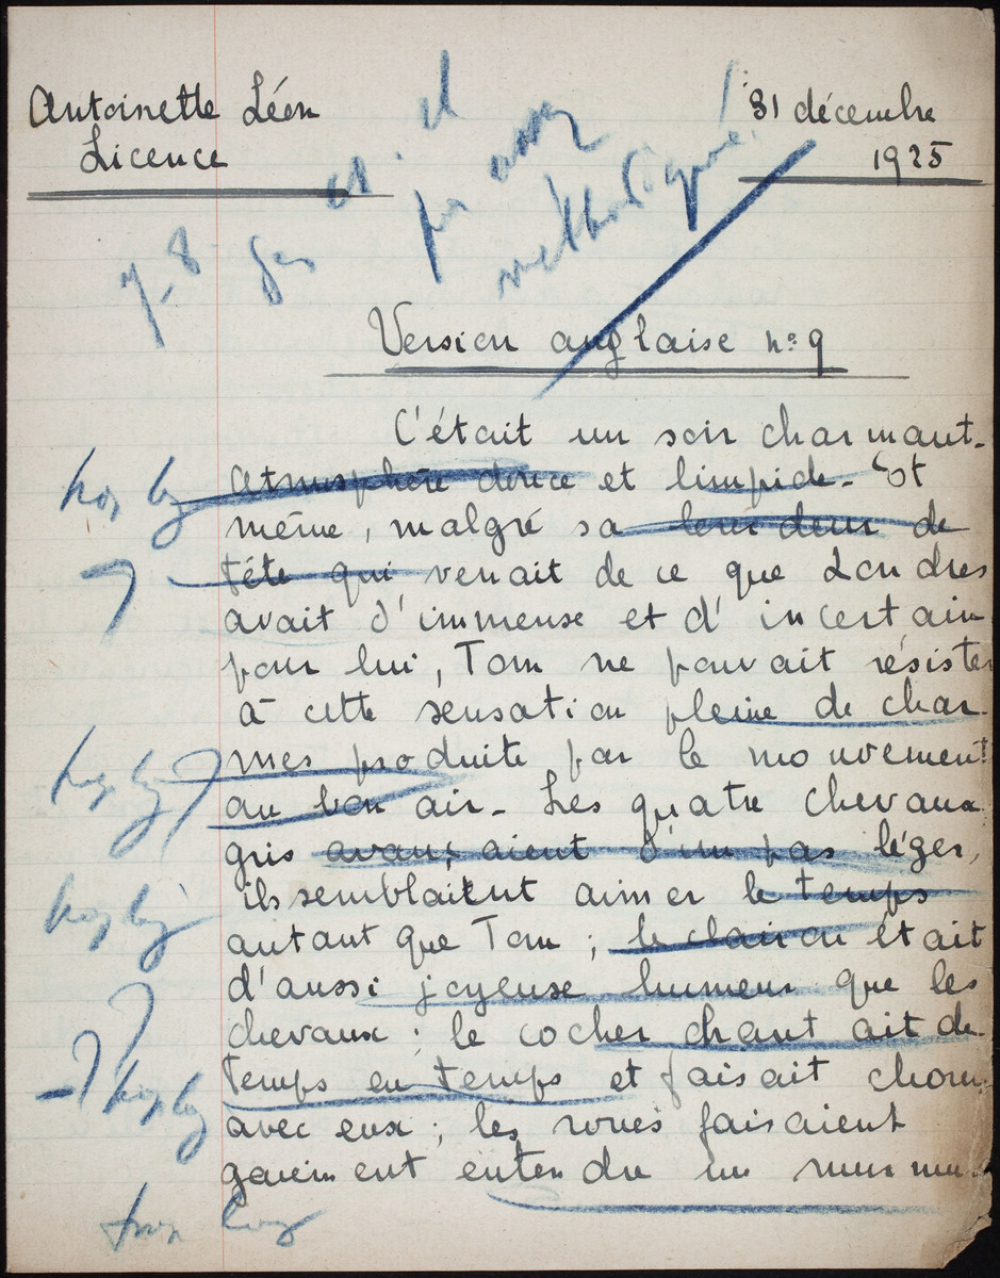 Antoinette Léon
31 décembre
Licence
1925
7-8
et
pas assez
méthodique.
Version anglaise n° 9
C'était un soir charmant -
atmosphère douce et limpide - Et
même, malgré sa lourdeur de
tête qui venait de ce que Londres
avait d'immense et d'incertain
pour lui, Tom ne pouvait résister
à cette sensation pleine de char-
mes produite par le mouvement
au bon air - Les quatre chevaux
gris avançaient d'un pas léger,
ils semblaient aimer le temps
autant que Tom ; le clairon était
d'aussi joyeuse humeur que les
chevaux ; le cocher chantait de
temps en temps et faisait
avec eux ; les roues faisaient
gaiement entendre un murmu-